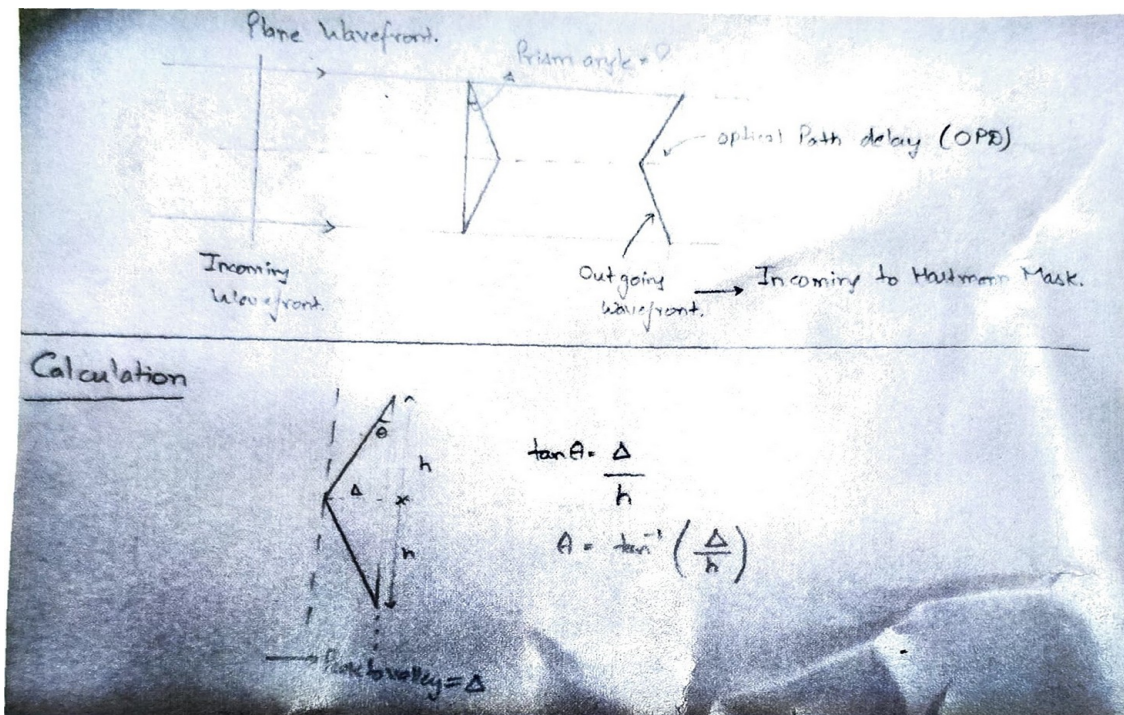 Plane Wavefront.
Prism angle = ?
optical Path delay (OPD)
Incoming
Wavefront.
Outgoing
Wavefront.
→ Incoming to Hartmann Mask.
Calculation
θ
h
Δ
h
tanθ = Δ/h
θ = tan⁻¹ (Δ/h)
→ Peak to valley = Δ